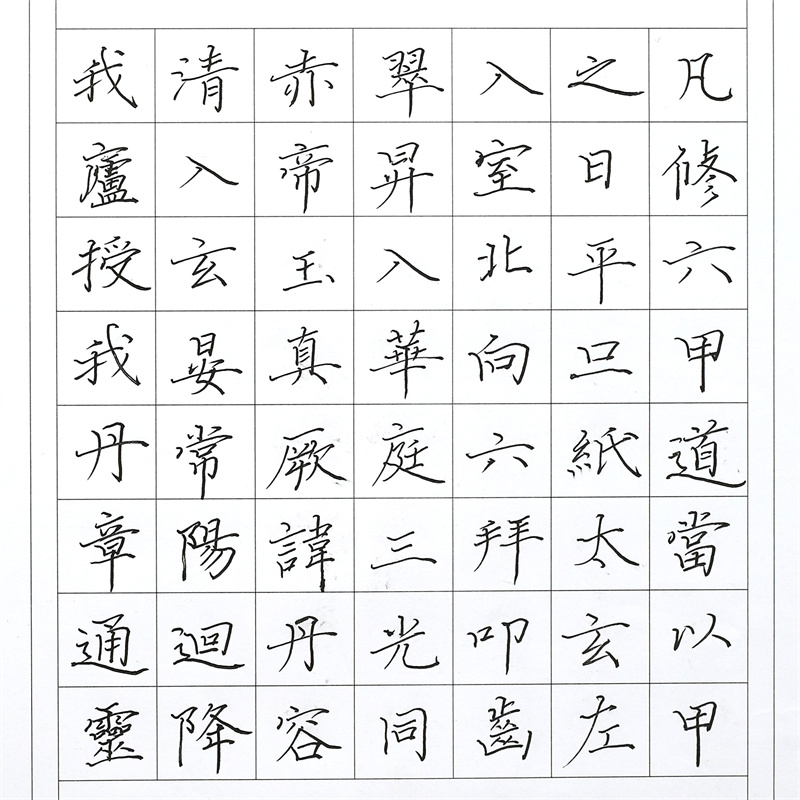 凡修六甲道當以甲
之日平旦紙太玄左
入室北向六拜叩齒
翠昇入華庭三光同
赤帝玉真厥諱丹容
清入玄晏常陽迴降
我廬授我丹章通靈